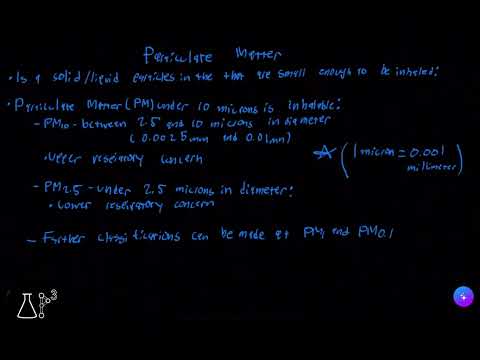 Particulate Matter
• Is a solid/liquid particles in the that are small enough to be inhaled:
• Particulate Matter (PM) under 10 microns is inhalable:
– PM10 - between 2.5 and 10 microns in diameter
(0.0025mm and 0.01mm)
• Upper respiratory concern
☆ (1 micron = 0.001
millimeter)
– PM2.5 - under 2.5 microns in diameter:
• Lower respiratory concern
– Further classifications can be made at PM1 and PM0.1
3